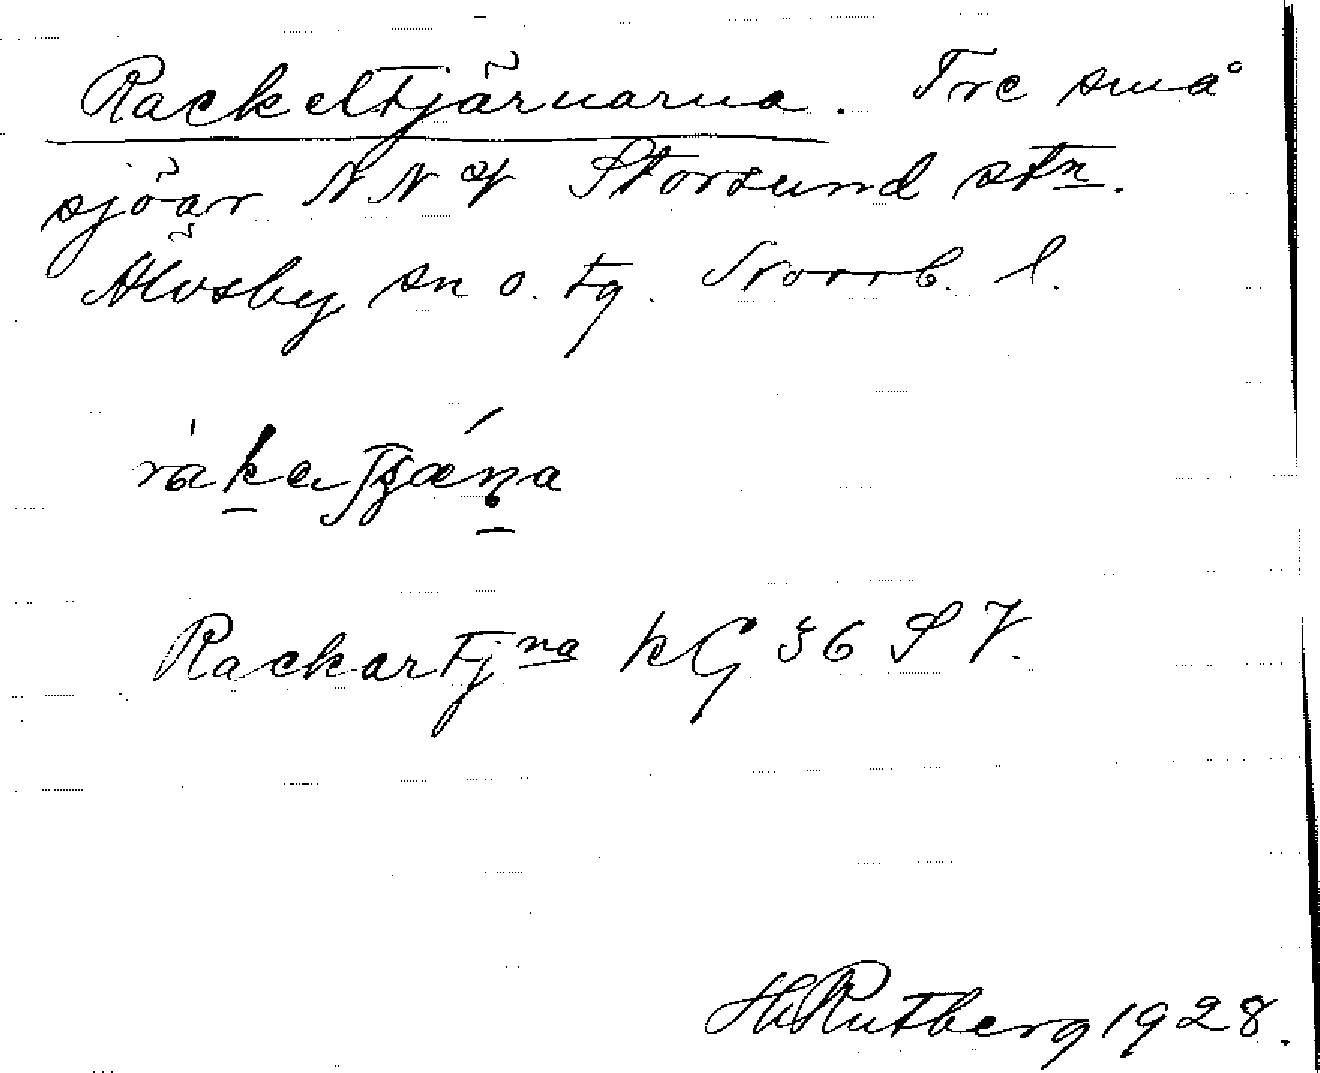 Rackeltjärnarna. Tre små
sjöar N N V Storsund stn.
Älvsby sn o. tg. Norrb. l.
Rackartjna kG 36 S V.
Hj Rutberg 1928.